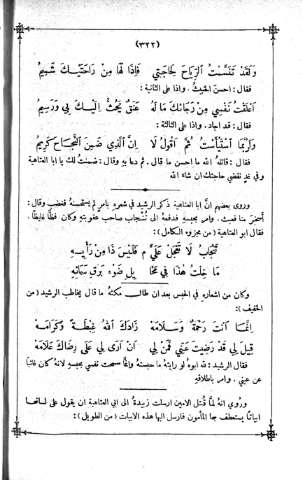 (٣٢٢)
وَلَقَدْ تَنَسَّمْتُ الرِّيَاحَ لِحَاجَتِي فَإِذَا لَهَا مِنْ رَاحَتَيْكَ شَمِيمُ
فقال : احسن الخبيث . واذا على الثانية :
أَعْلَقْتُ نَفْسِي مِنْ رَجَائِكَ مَا لَهُ عَنَقٌ يَحُثُّ إِلَيْكَ بِي وَرَسِيمُ
فقال : قد اجاد . واذا على الثالثة :
وَلَرُبَّمَا ٱسْتَيْأَسْتُ ثُمَّ أَقُولُ لَا إِنَّ ٱلَّذِي ضَمِنَ ٱلنَّجَاحَ كَرِيمُ
فقال : قاتلهُ الله ما احسن ما قال . ثم دعا بهِ وقال : ضمنتُ لك يا ابا العتاهية
وفي غدٍ نقضي حاجتك ان شاء الله
وروى بعضهم انَّ ابا العتاهية ذكر الرشيد في شعرهِ بامرٍ لم يستحسنهُ فغضب وقال :
أَسخرَ منا فعبث . وامر بحبسهِ فدفعهُ الى تنجاب صاحب عقوبتهِ وكان فظًّا غليظًا .
فقال ابو العتاهية (من مجزوء الكامل) :
تَنْجَابُ لَا تَعْجَلْ عَلَيَّ م فَلَيْسَ ذَا مِنْ رَأْيِهِ
مَا خِلْتُ هٰذَا فِي مَخَا يِلِ ضَوْءِ بَرْقِ سَمَائِهِ
وكان من اشعاره في الحبس بعد ان طالب مكثهُ ما قال يخاطب الرشيد (من
الخفيف) :
إِنَّمَا أَنْتَ رَحْمَةٌ وَسَلَامَهْ زَادَكَ ٱللهُ غِبْطَةً وَكَرَامَهْ
قِيلَ لِي قَدْ رَضِيتَ عَنِّي فَمَنْ لِي أَنْ أَرَى لِي عَلَى رِضَاكَ عَلَامَهْ
فقال الرشيد : لله ابوهُ لو رايتهُ ما حبستهُ وانَّما سمحت نفسي بحبسهِ لانهُ كان غائبًا
عن عيني . وامر باطلاقهِ
ورُوي انهُ لما قُتل الامين ارسلت زبيدة الى ابي العتاهية ان يقول على لسانها
ابياتًا يستعطف بها المأمون فارسل اليها هذه الابيات (من الطويل) :